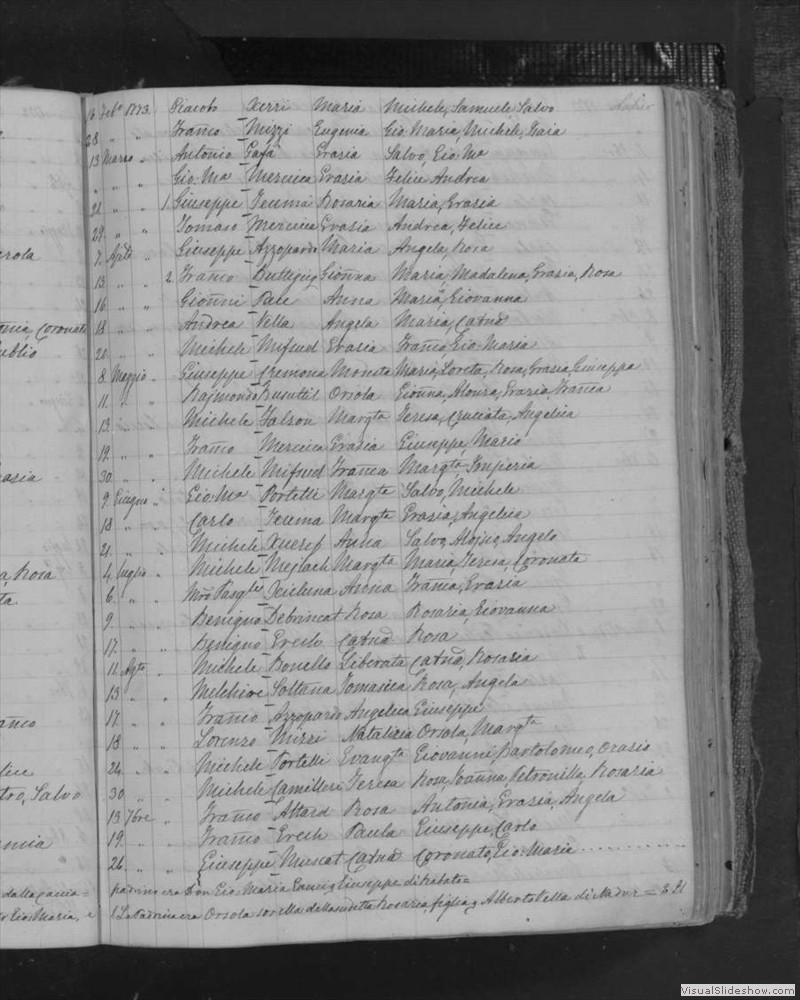 16 Feb° 1873. Giacobo Xerri Maria Michele, Samuele Salvo
28 " " Franco Mizzi Eugenia Gio Maria, Michele,
13 Marzo " Antonio Gafa Grasia Salvo, Gio Ma
" " " Gio. Ma Mercieca Grasia Felice Andrea
21 " " 1. Giuseppe Teuma Rosaria Maria, Grasia
29. " " Tomaso Mercieca Grasia Andrea, Felice
7. Aple " Giuseppe Azzopardo Maria Angela, Rosa
13 " " 2. Franco Buttgieg Gionna Maria, Madalena, Grasia, Rosa
16 " " Gionni Pace Anna Maria, Giovanna
18 " " Andrea Vella Angela Maria, Catna
20 " " Michele Mifsud Grasia Franco, Gio. Maria
8 Maggio " Giuseppe Cremona Moneta Maria, Loreta, Rosa, Grasia, Giuseppa
11. " " Rajmondo Busuttil Orsola Gionna, Alonsa, Grazia, Franca
13 " " Michele Falzon Margta Teresa, Cruciata, Angelica
19. " " Franco Mercieca Grasia Giuseppe, Mario
30 " " Michele Mifsud Franca Margta Imperia
9 Giugno " Gio: Ma Portelli Margta Salvo, Michele
18 " " Carlo Teuma Margta Grasia, Angelica
21. " " Michele Xueref Anna Salvo, Alojso, Angelo
4 Luglio " Michele Mejlach Margta Maria, Teresa, Coronata
6. " " Mro Pasqle Xicluna Anna Franca, Grasia
9 " " Benigno Debrincat Rosa Rosaria, Giovanna
17. " " Benigno Grech Catna Rosa
11. Agto " Michele Bonello Liberata Catna, Rosaria
13 " " Melchire Soltana Tomasica Rosa, Angela
17. " " Franco Azzopardo Angelica Giuseppe
18 " " Lorenzo Mizzi Natalizia Orsola, Margta
24 " " Michele Portelli Evangta Giovanni Bartolomeo, Orasio
30 " " Michele Camilleri Teresa Rosa, Joanna, Petronilla, Rosaria
13 7bre " Franco Attard Rosa Antonia, Grasia, Angela
19. " " Franco Grech Paula Giuseppe, Carlo
26. " " Giuseppe Muscat Catna Coronato, Gio: Maria
padrino era Don Gio Maria Giuseppe di Rabato =
La Padrina era Orsola sorella della sudetta Rosarea figlia Alberto Vella di Nadur =
erola
Coronata
ublio
asia
Rosa
ta.
anco
lice
tro, Salvo
dalla
Gio Maria, e
VisualSlideshow.com